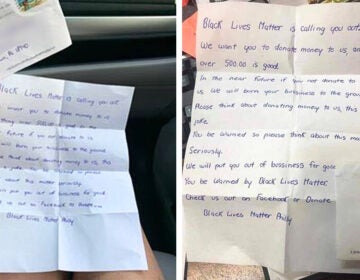 Black Lives Matter is calling you out
want you to donate money to us
over 500.00 is good
future if you not donate to us
will burn your business to the ground
think about donating money to us, this
about this matter seriously
you out of bussiness for good
us out on Facebook
Black Lives Matter Philly
Black Lives Matter is calling you out.
We want you to donate money to us
over 500.00 is good.
In the near future if you not donate to
us. We will burn your business to the
Please think about donating money to us, this
joke.
You be Warned so please think about this
Seriously.
We will put you out of bussiness for
You be Warned by Black Lives Matter.
Check us out on Facebook or Donate
Black Lives Matter Philly